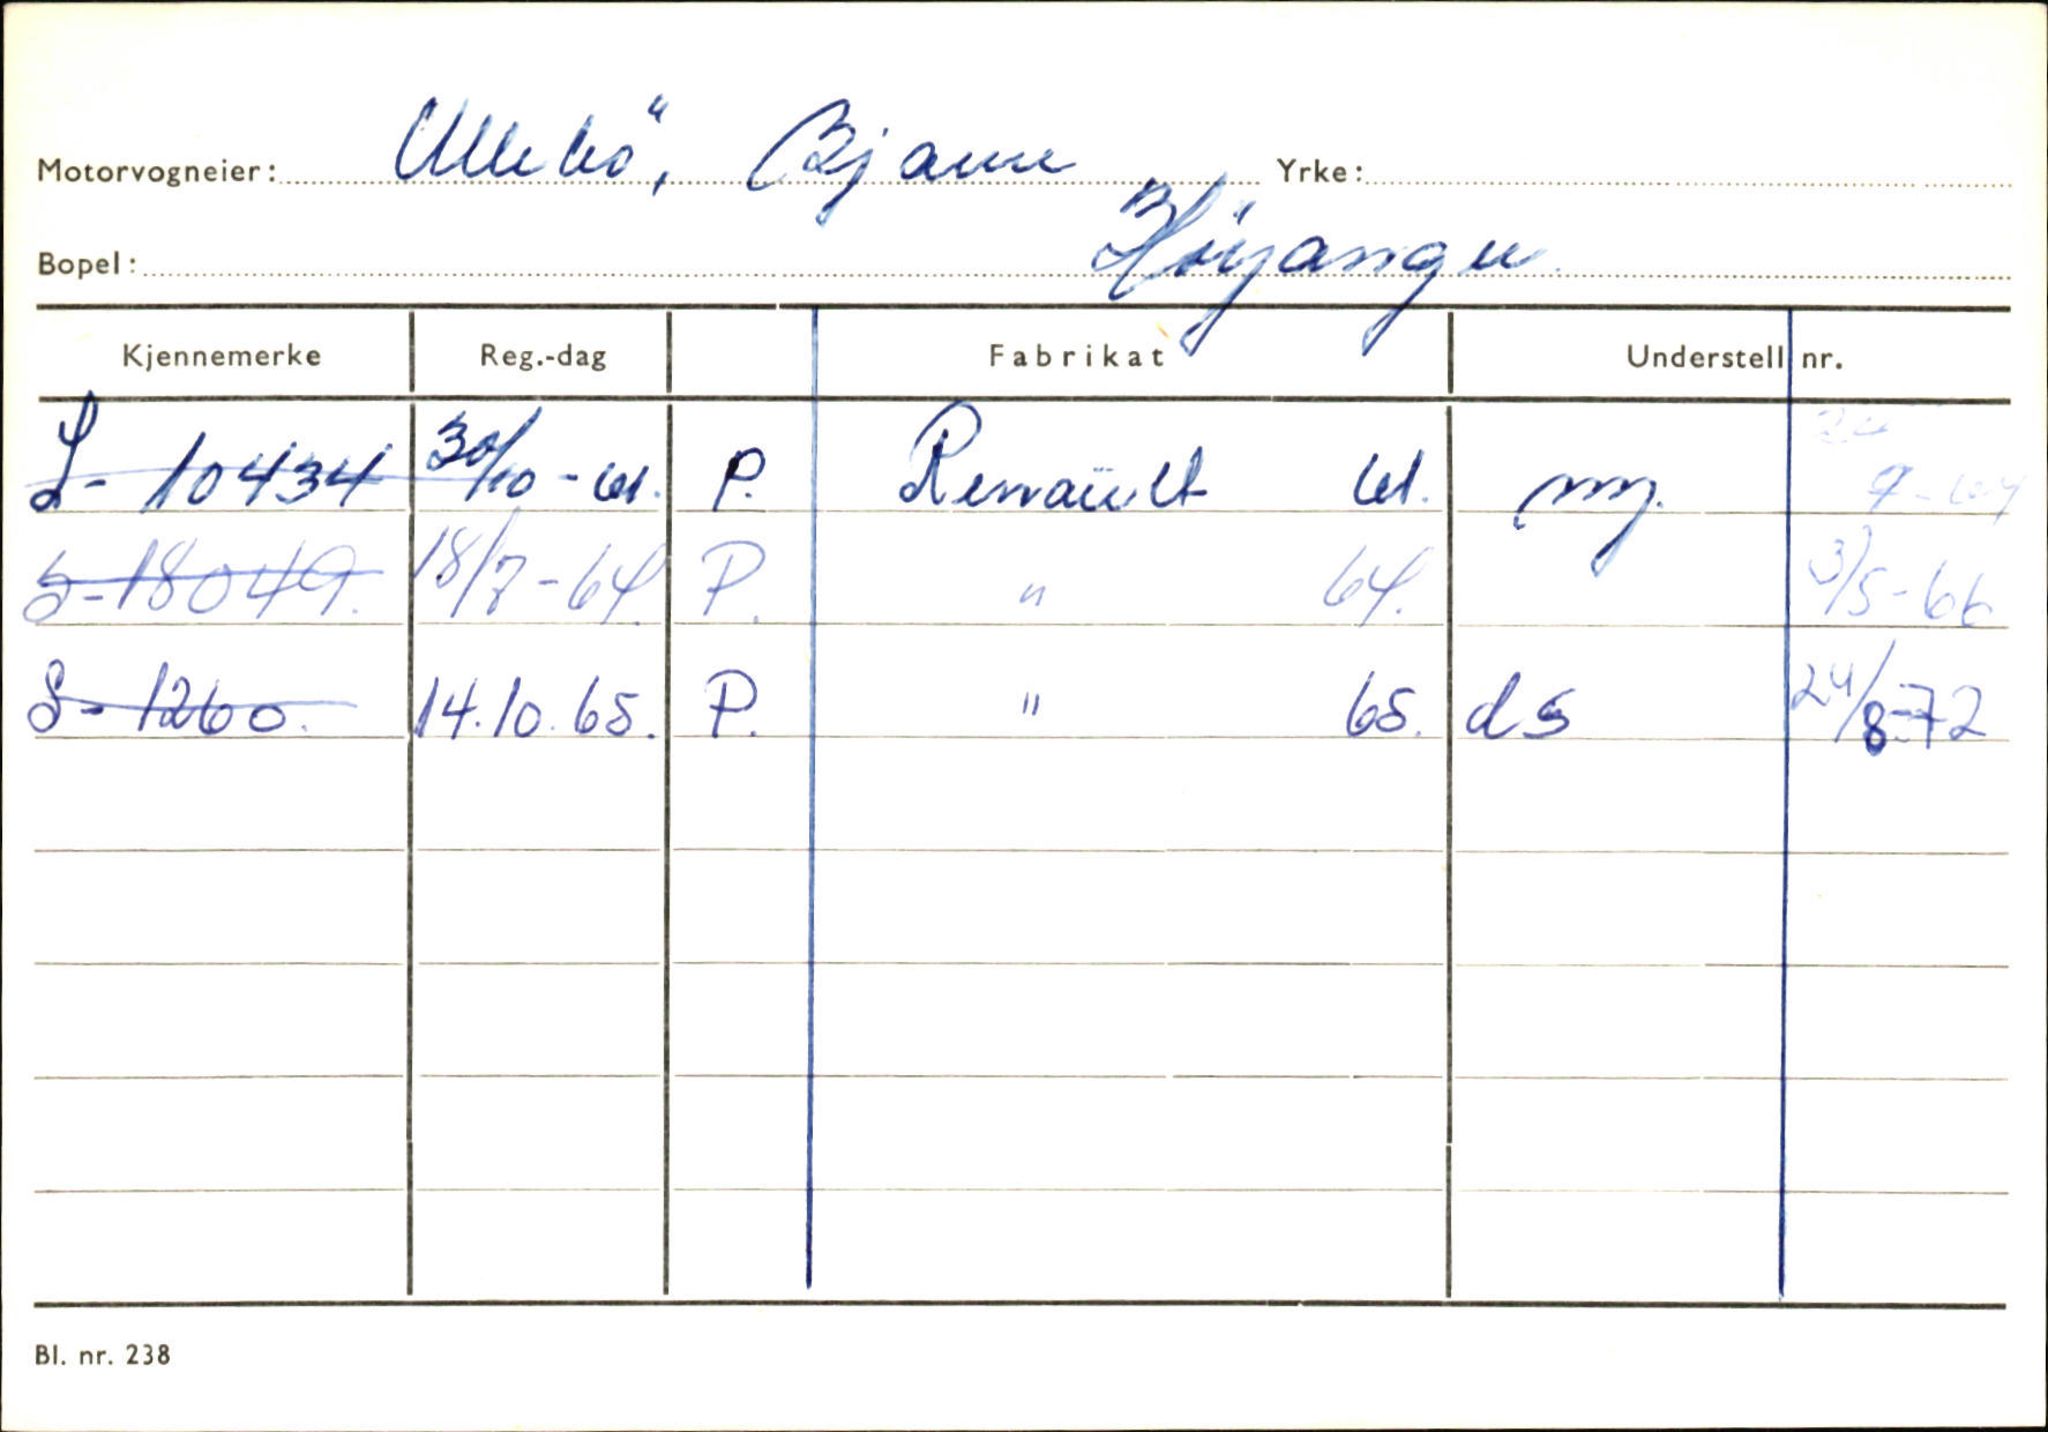 Motorvogneier: Ullebö, Bjarne Yrke:
Bopel: Höyanger
Kjennemerke Reg.-dag Fabrikat Understell nr.
S- 10434 30/10-61. P. Renault 61. ny. 9-64
S-18049. 18/7-64. P. " 64. 3/5-66
S- 1260. 14.10.65. P. " 65. ds 24/8-72
Bl. nr. 238